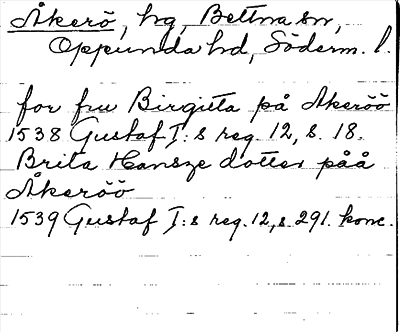 Åkerö, hg, Bettna sn,
Oppunda hd, Söderm. l.
for fru Birgitta på Akeröö
1538 Gustaf I:s reg. 12, s. 18.
Brita Hansze dotter påå
Åkeröö
1539 Gustaf I:s reg. 12, s. 291. konc.